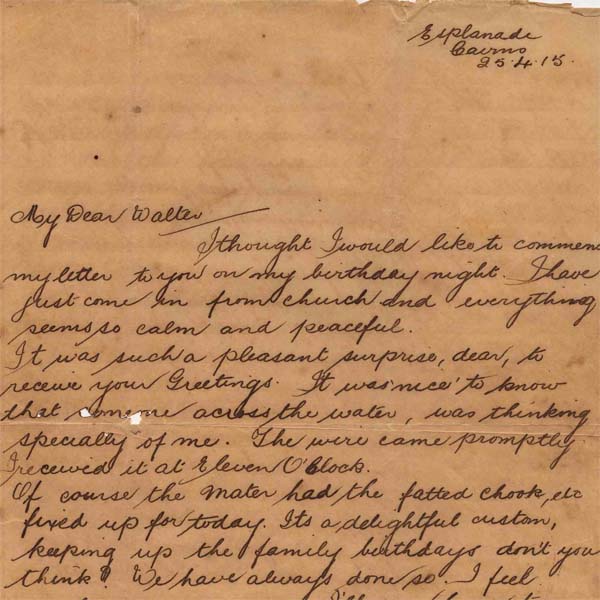 Esplanade
Cairns
25.4.15.
My Dear Walter
I thought I would like to commenc
my letter to you on my birthday night. I have
just come in from church and everything
seems so calm and peaceful.
It was such a pleasant surprise, dear, to
receive your Greetings. It was 'nice' to know
that someone across the water, was thinking
specially of me. The wire came promptly.
I received it at Eleven O'Clock.
Of course the Mater had the fatted chook, etc
fixed up for today. Its a delightful custom,
keeping up the family birthdays don't you
think? We have always done so. I feel